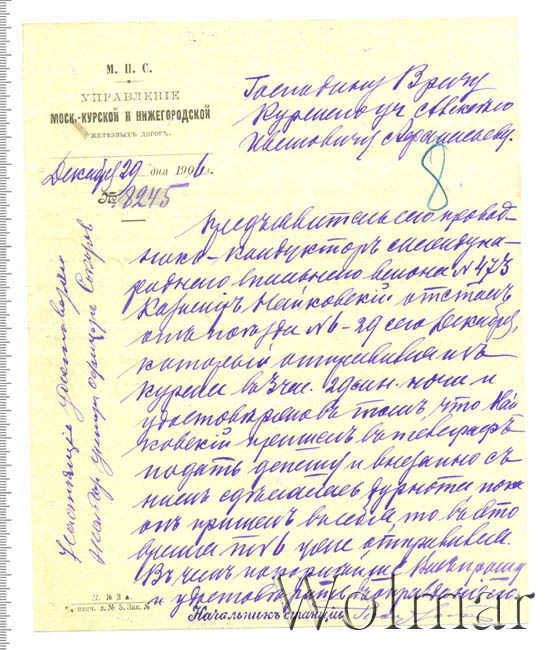 М. П. С.
УПРАВЛЕНІЕ
МОСК.-КУРСКОЙ И НИЖЕГОРОДСКОЙ
ЖЕЛѢЗНЫХЪ ДОРОГЪ.
Декабря 29 дня 1906 г.
№ 8245
Господину Врачу
8
Предъявитель сего провод-
никъ-кондукторъ междуна-
роднаго спального вагона № 473
Казимiръ Майковскій отсталъ
отъ поѣзда № 6-29 сего Декабря,
который отправился изъ
Курска въ 3 час. 29 мин. ночи и
удостовѣряю въ томъ, что Май
ковскій пришелъ въ телеграфъ
подать депешу и внезапно съ
нимъ сдѣлалась дурнота пока
онъ пришелъ въ себя, то въ это
время п. № 6 уже отправился.
Въ чемъ
и удостовѣрить
Начальникъ станціи
Настоящіе удостовѣряю
унтеръ офицеръ
Wolmar